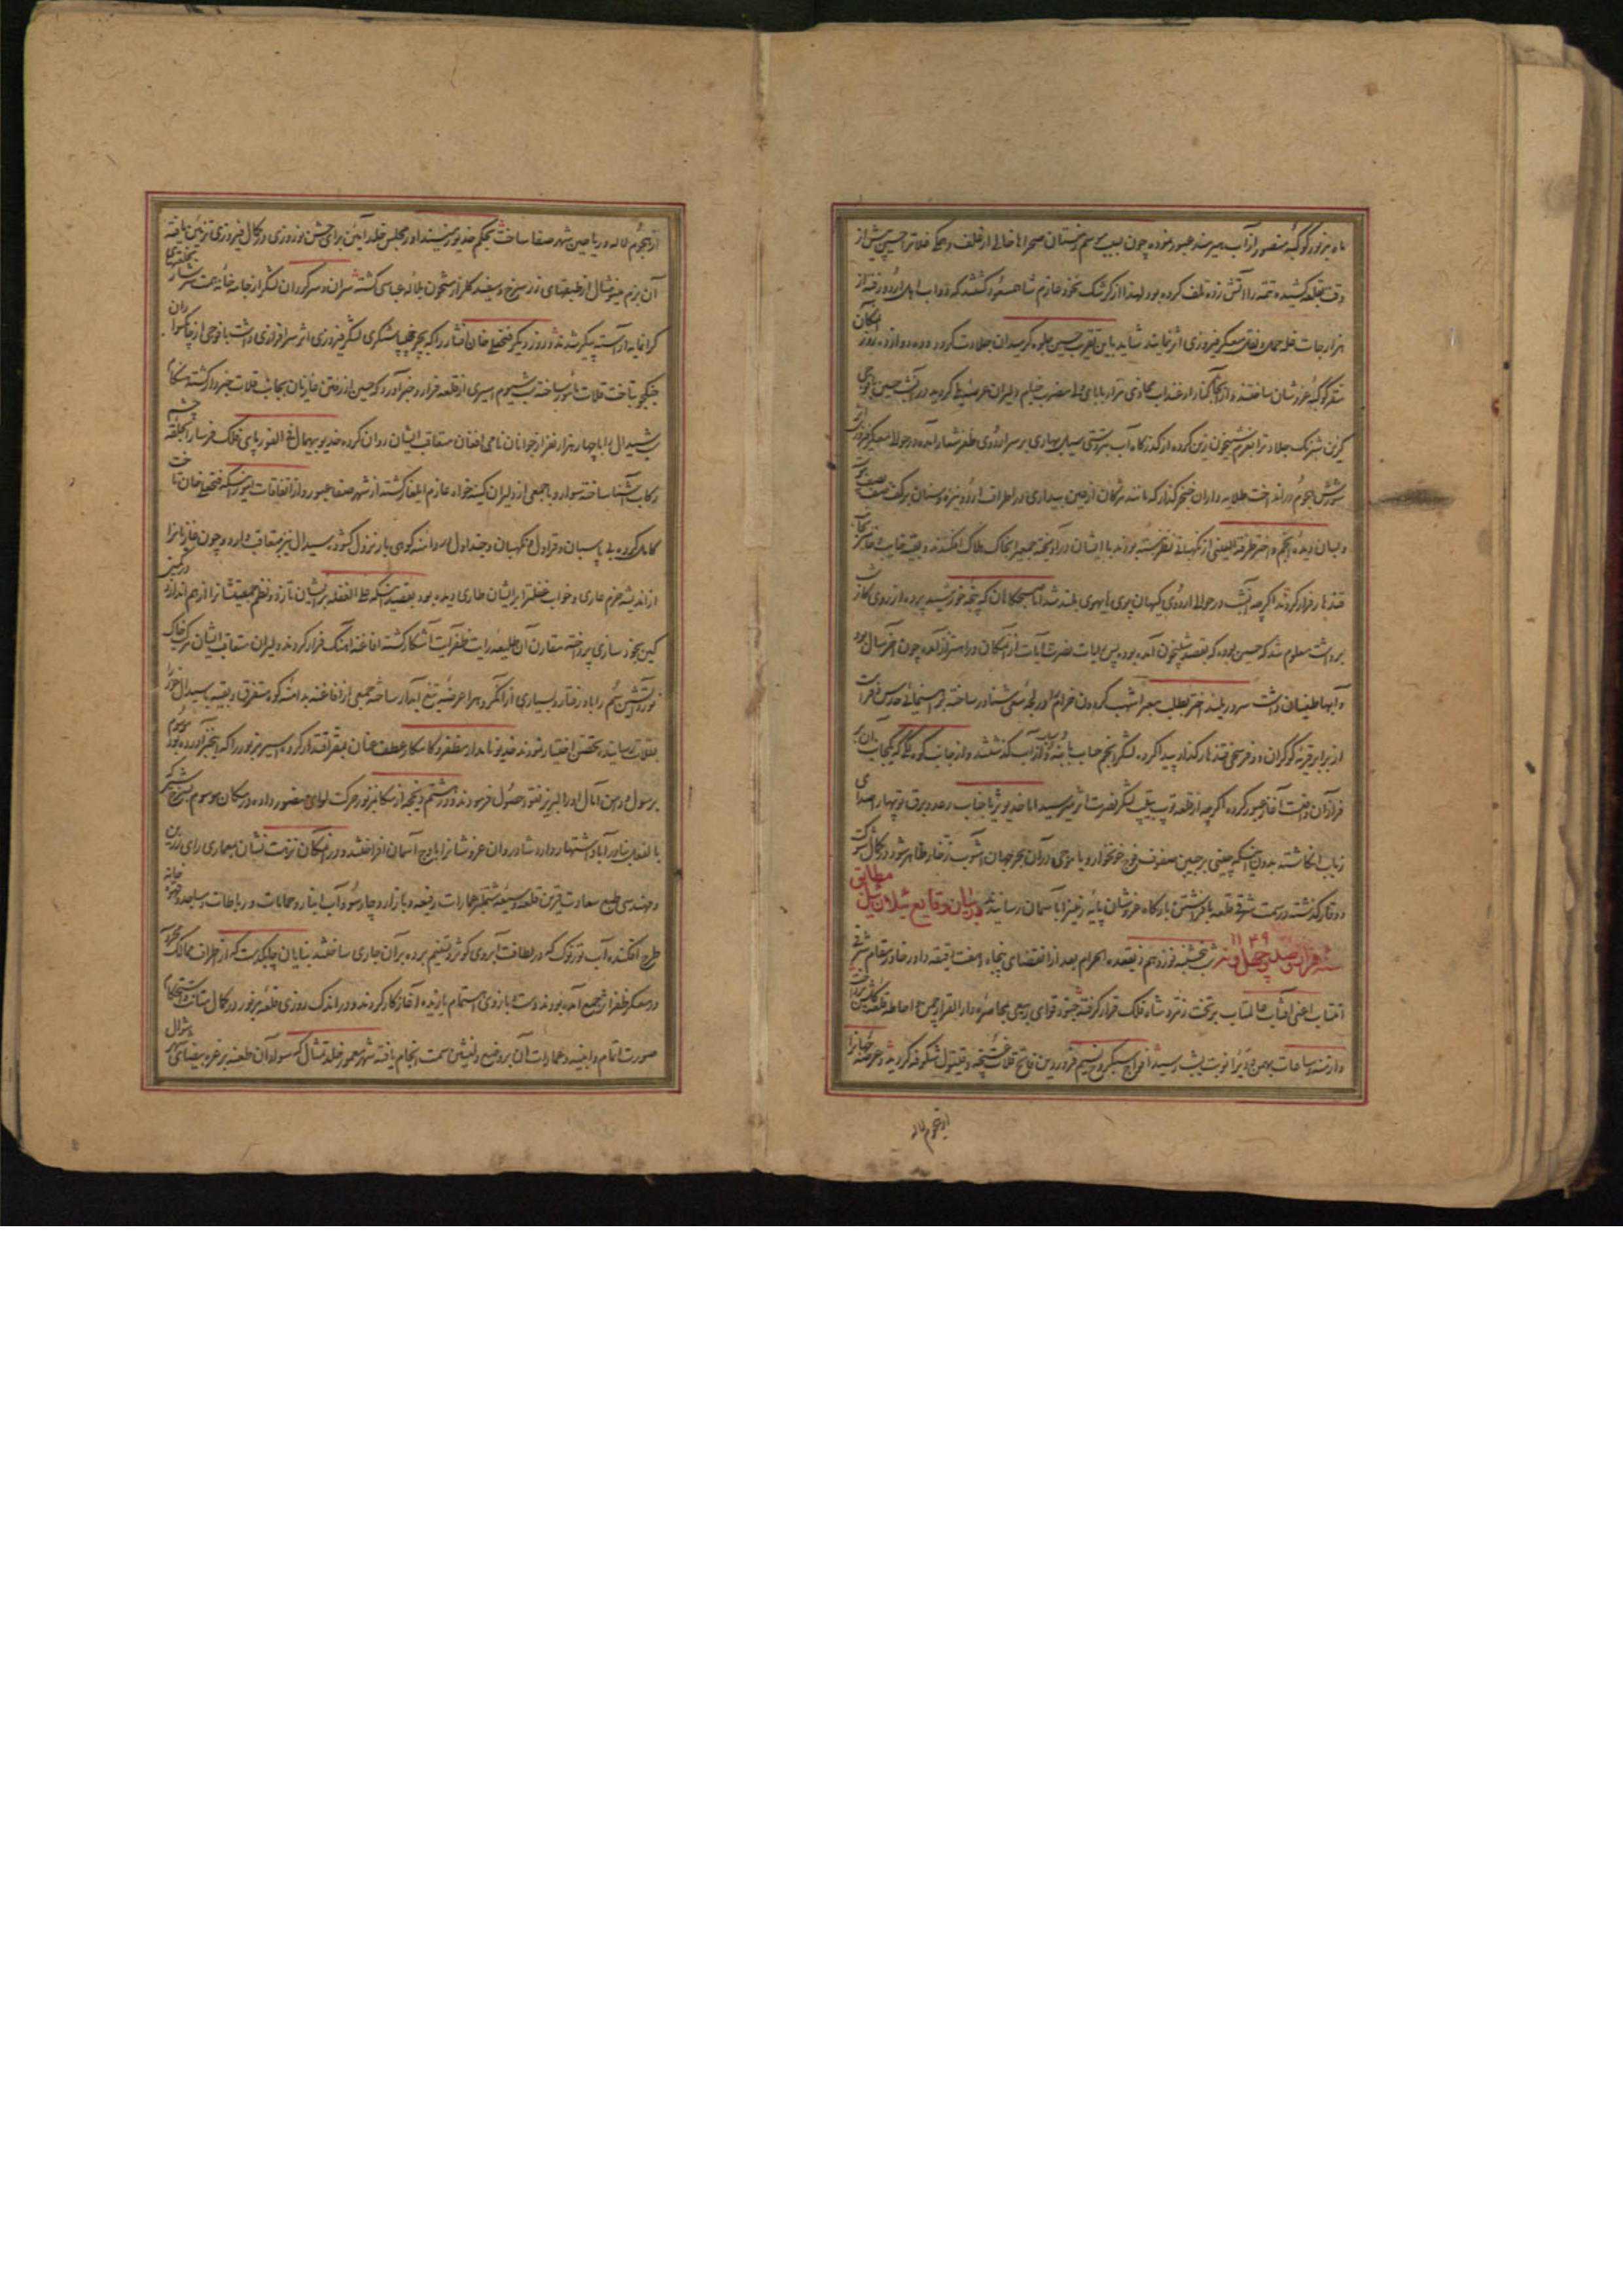 ماه مزبور کوکبهٔ منصور از آب هیرمند عبور نموده چون سمت زمستان صحراها خالی از علف و حسین پیش از
وقت بقلعه کشیده تتمه را آتش زده تلف کرده بود لهذا از کرشک بخود عازم شاه مسعود کشتند که دواب اهل اردو رفته از
هزارجات غله حمل و نقل معسکر فیروزی اثر نمایند شاید باین تقریب حسین جلوه کر میدان جلادت کردد
مقر کوکبهٔ عز و شان ساختند و از آنجا کنار ارغنداب محاذی مزار بابا ولی مضرب خیام دلیران کردید در آنشب حسین با فوجی
شبرنک جلادت را بعزم شبیخون زین کرده از کذرکاه آب بر سر اردوی ظفر شعار آمده در حوالی معسکر فیروزی
شورش هجوم در انداخت طلایه داران خنجر کذار که مانند مژکان از عین بیداری در اطراف اردو نیزه و سنان بر کف
و بسان دیدهٔ انجم و اختر طرفة العینی از نکهبانی نظر نبسته بودند با ایشان در آویخته جمعی را بخاک هلاک افکندند و بقیه
قندهار فرار کردند اکرچه آنشب در حوالی اردوی کیهان پوی هایهوی بلند شد اما صبحکاهان که پنجهٔ خورشید پرده از روی کار
برداشت معلوم شد که حسین بوده که بقصد شبیخون آمده بود پس رایات نصرت آیات از آن مکان در اهتزاز آمده چون آخر سال بود
و آبها طغیان داشت سرور بلند اختر بطلب معبر اشهب کردون خرام در لجه سعی شناور ساخته
از برابر قریهٔ کوکران دو فرسخی قندهار کذار پیدا کرده لشکر انجم حساب از آب کذشتند و از جانب کوه
فراز آن داشت آغاز عبور کرده اکرچه از قلعه توپ بیقیاس بلشکر نصرت اثر میرسید اما خدیو ثریا جناب رعد و برق توپها را صدای
ذباب انکاشته بدون اینکه چینی بر جبین صفوف فوج خونخوار و یا موجی در آن بحر جهان آشوب زخار ظاهر شود در کمال شوکت
و وقار کذشته در سمت شرقی قلعه بافراشتن بارکاه عز و شان پایه زمین را بآسمان رسانیدند در بیان وقایع ییلان ییل مطابق
سنه هزار و صد و چهل و نه ۱۱۴۹ شب پنجشنبه نوزدهم ذیقعده الحرام بعد از انقضای پنجاه و هفت دقیقه داور خاور مقام شرقی
انتساب اعنی آفتاب عالمتاب بر تخت زمرد شاه فلک قرار کرفته جیوش قوای ربیعی بمحاصرهٔ دارالقرار چمن احاطه
و از منسوبات بهمن و دی را نوبت رسید افواج سبکروح نسیم فروردین فاتح قلاع غنچه و قیتول شکوفه کردیده و عرصه جهانرا
از هجوم لاله
از هجوم لاله و ریاحین شهر صفا ساخت بحکم خدیو مؤید داور مجلس خلد آئین برای جشن نوروزی در کمال فیروزی تزئین یافته
آن بزم مینو مثال از طبقهای زر سرخ و سفید کلزار مشحون بلاله عباسی کشته سران و سرکردان لشکر از جامه خانهٔ همت سرشار بخلعتهای
کرانمایه آراسته پیکر شدند و روز دیکر فتحعلی خان افشار را که بچرخچی باشیکری لشکر فیروزی اثر سرافرازی داشت با فوجی از یکتا سواران
جنکجو بتاخت قلات مأمور ساخته شب سیوم اسیری از قلعه فرار و خبر آورد که حسین از رفتن غازیان بجانب قلات خبردار کشته
سیدال را با چهار هزار نفر از جوانان نامی افغان متعاقب ایشان روان کرده خدیو بیهمال علی الفور پای فلک فرسا را بحلقهٔ
رکاب آشنا ساخته سوار و با جمعی از دلیران کینه خواه عازم ایلغار کشته از شهر صفا عبور و از اتفاقات آنروز اینکه فتحعلیخان تاخت
کامل کرده بی پاسبان و قراول و نکهبان و چنداول در دامنه کوهی بار نزول کشود سیدال نیز متعاقب وارد و چون غازیان را
از اندیشه حزم عاری و خواب غفلت را بر ایشان طاری دیده بود بقصد اینکه علی الغفله بر ایشان تازد و نظم جمعیتشان را از هم اندازد در کمین
کین بخود سازی پرداخته مقارن آن طلیعهٔ رایت ظفر آیت آشکار کشته افاغنه آهنک فرار کردند دلیران متعاقب ایشان مرکب خاک
نورد آتشین سم را باد رفتار و بسیاری از آن کروه را عرضهٔ تیغ آبدار ساخته جمعی از افاغنه بدامنهٔ کوه متفرق و بقیه با سیدال خود را
بقلات رسانیده تحصن اختیار نمودند خدیو نامدار مظفر و کامکار عطف عنان بمقر اقتدار کرده اسیر مزبور را که این خبر آورده بود موسوم
برسول و دامن آمال او را لبریز نقود حصول فرمودند و در هشتم ذیحجه از مکان مزبور حرکت لوای منصور داده در مکان موسوم بسرخه شیر که
بالفعل بنادر آباد اشتهار دارد شادروان عز و شان را باوج آسمان افراختند و در آن مکان نزهت نشان بمعماری رای رزین
و مهندسی طبع سعادت قرین قلعه وسیعه مشتمل بر عمارات رفیعه و بازار و چارسو و آب انبار و حمامات و رباطات و مساجد و قهوه خانه
طرح افکنده آب ترنوک که در لطافت آبروی کوثر و تسنیم برده بر آن جاری ساختند بنایان چابکدست که از اطراف ممالک محروسه
در معسکر ظفر اثر جمع آمده بودند دست و بازوی اهتمام یازیده آغاز کار کردند و در اندک روزی قلعهٔ مزبور در کمال متانت و استحکام
صورت اتمام و ابنیه و عمارات آن بر وضع دلنشین سمت انجام یافته شهر معمور خلد تمثال که سواد آن طعنه بر غره بیضای شوال